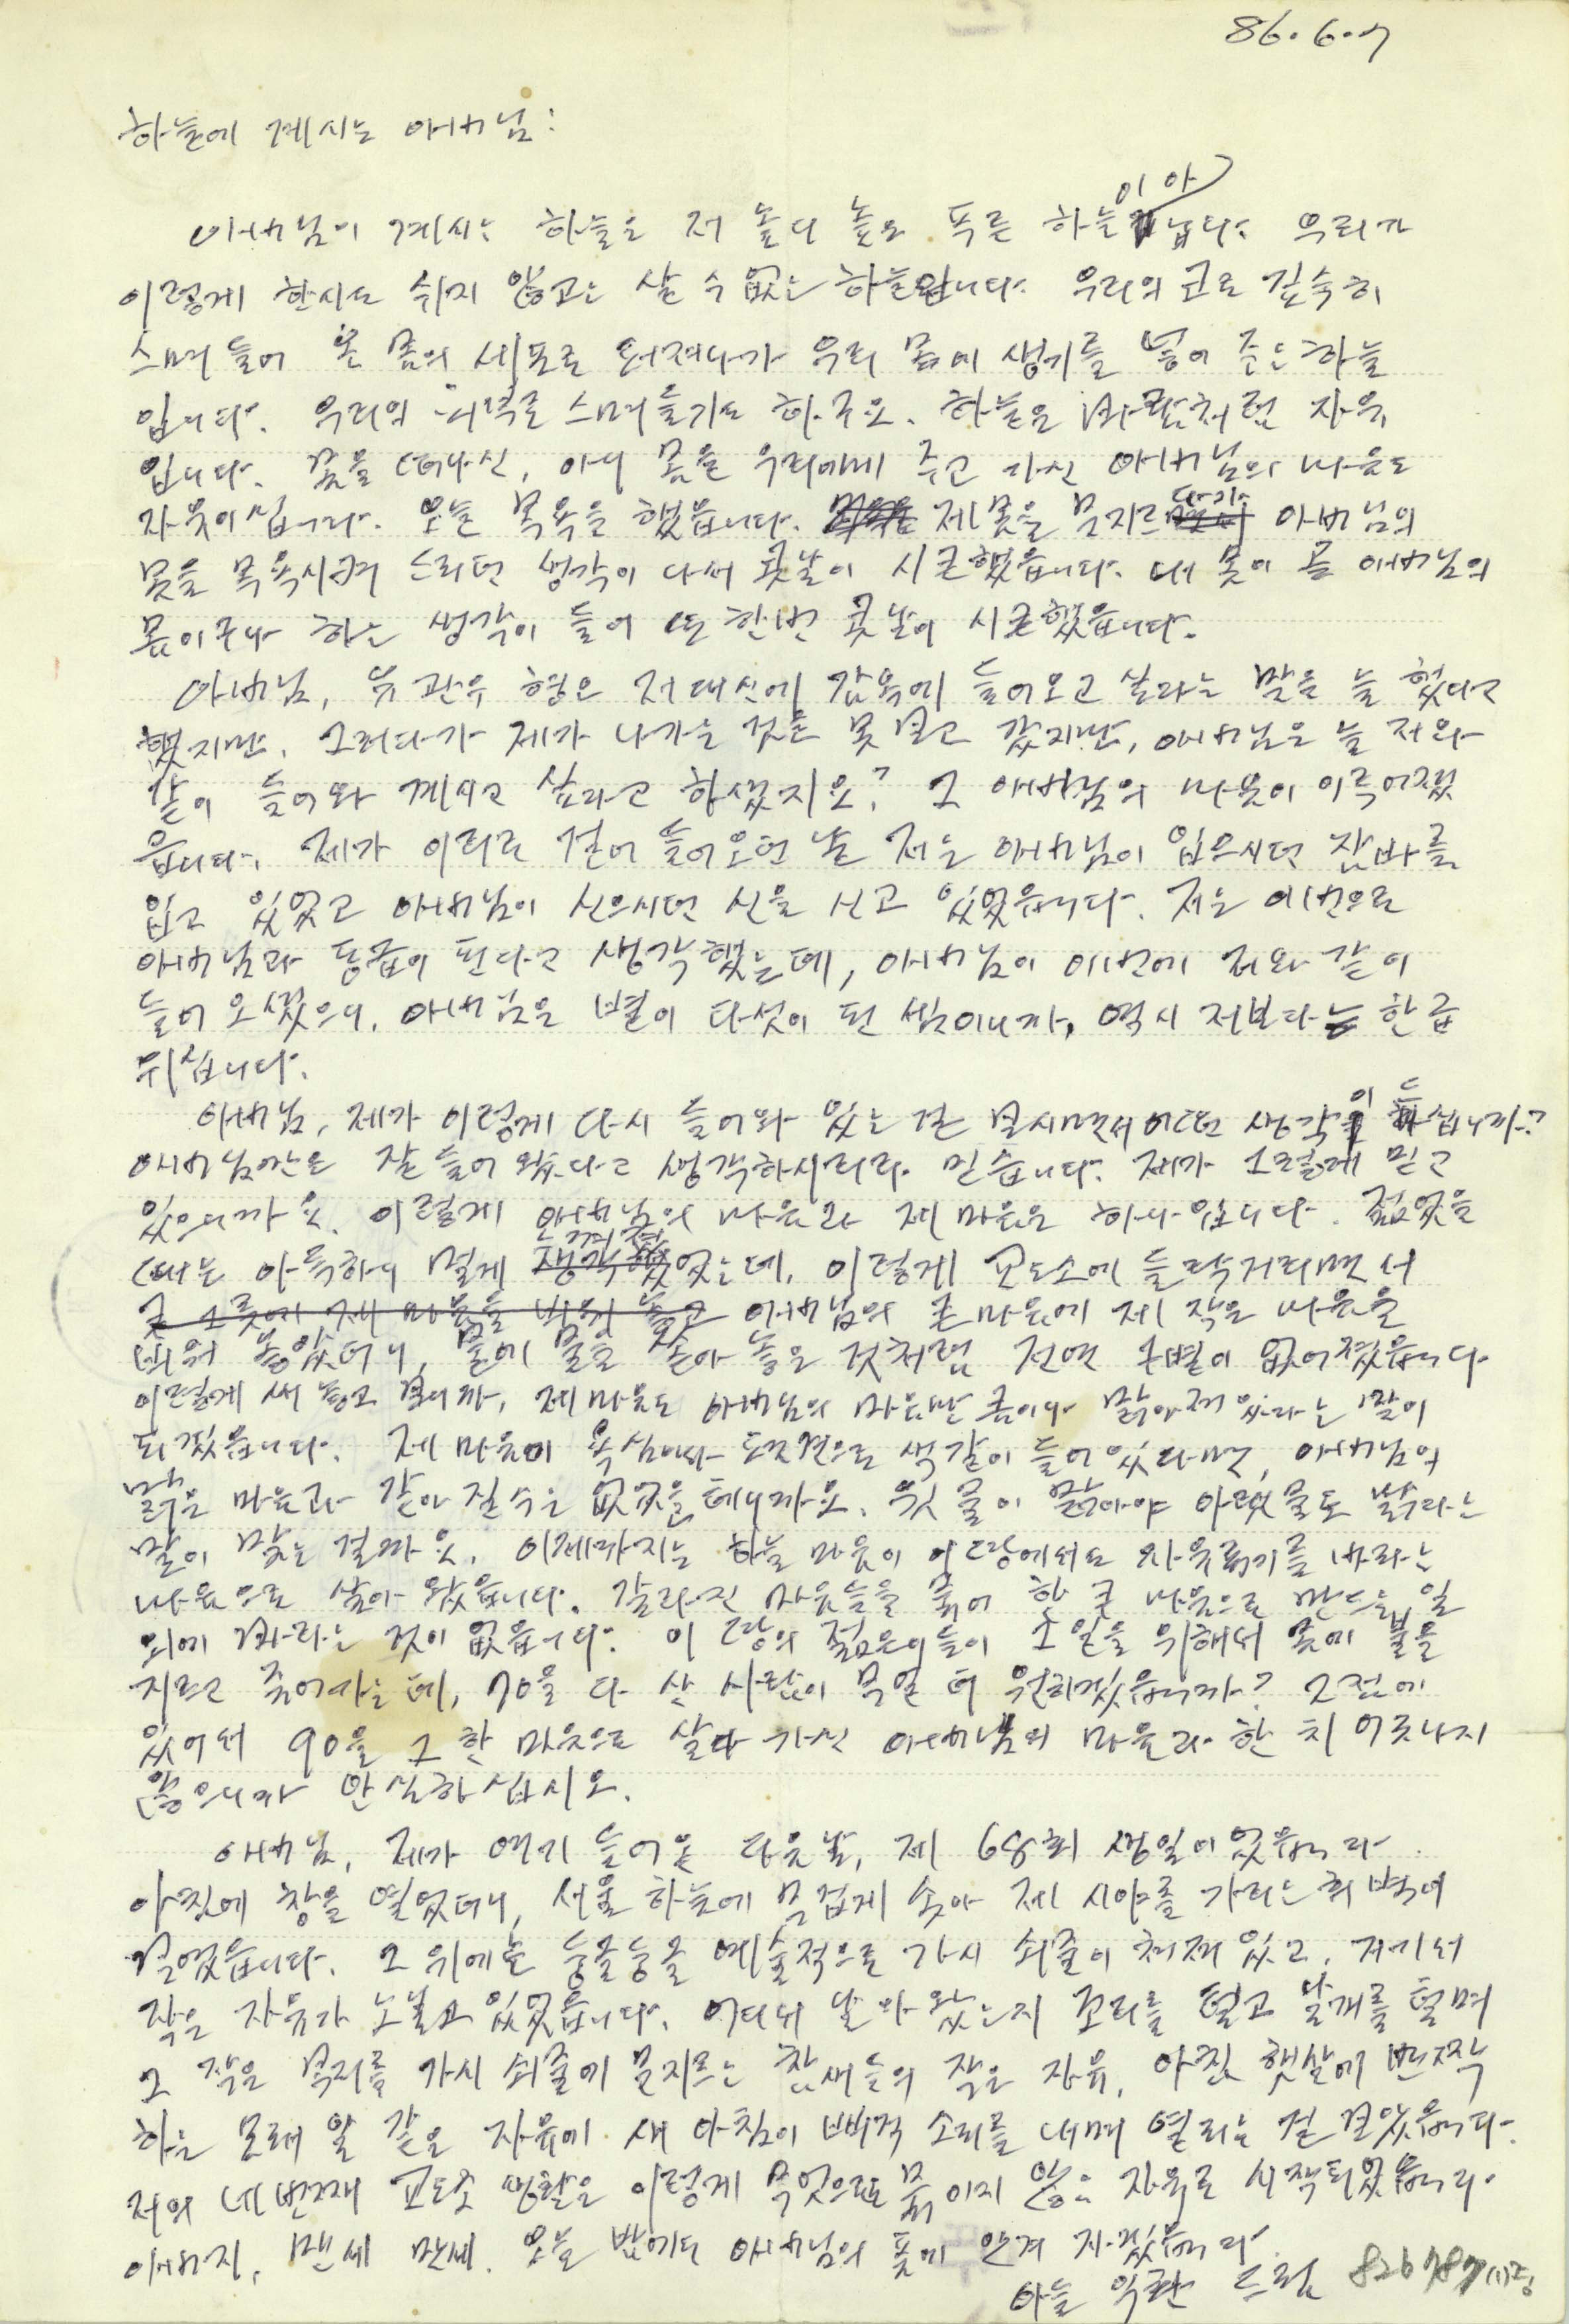 86. 6. 7
하늘에 계시는 아버님:
이 아
아버님이 계시는 하늘은 저 높디 높은 푸른 하늘 닙니다. 우리가
이렇게 한시도 쉬지 않고는 살 수 없는 하늘입니다. 우리의 코로 깊숙히
스며들어 온 몸의 세포로 퍼져나가 우리 몸에 생기를 넣어 주는 하늘
입니다. 우리의 스며들기도 하구요. 하늘은 바람처럼 자유
입니다. 몸을 떠나신, 아니 몸을 우리에게 주고 가신 아버님의 마음도
자유이십니다. 오늘 목욕을 했읍니다. 제 몸을 문지르다가 아버님의
몸을 목욕시켜 드리던 생각이 나서 콧날이 시큰했읍니다. 내 몸이 곧 아버님의
몸이구나 하는 생각이 들어 또 한번 콧날이 시큰했읍니다.
아버님, 유관우 형은 저 대신에 감옥에 들어오고 싶다는 말을 늘 했다고
했지만, 그러다가 제가 나가는 것을 못 보고 갔지만, 아버님은 늘 저와
같이 들어와 계시고 싶다고 하셨지요? 그 아버님의 마음이 이루어졌
읍니다. 제가 이리로 걸어 들어오던 날 저는 아버님이 입으시던 잠바를
입고 있었고 아버님이 신으시던 신을 신고 있었읍니다. 저는 이번으로
아버님과 동급이 된다고 생각했는데, 아버님이 이번에 저와 같이
들어 오셨으니, 아버님은 별이 다섯이 된 셈이니까, 역시 저보다는 한 급
위십니다.
아버님, 제가 이렇게 다시 들어와 있는 걸 보시면서 어떤 생각이 드십니까?
아버님만은 잘 들어왔다고 생각하시리라 믿습니다. 제가 그렇게 믿고
있으니까요. 이렇게 아버님의 마음과 제 마음은 하나입니다. 젊었을
때는 아득하니 멀게 느껴졌었는데, 이렇게 교도소에 들락거리면서
큰 그릇에 제 마음을 비워 놓고 아버님의 큰 마음에 제 작은 마음을
비워 놓았더니, 물에 물을 쏟아 놓은 것처럼 전연 구별이 없어졌읍니다.
이렇게 써 놓고 보니까, 제 마음도 아버님의 마음만큼이나 맑아져 있다는 말이
되겠읍니다. 제 마음이 욕심이나 편견으로 색갈이 들어 있다면, 아버님의
맑은 마음과 같아질 수는 없었을 테니까요. 윗 물이 맑아야 아랫물도 맑다는
말이 맞는 걸까요. 이제까지는 하늘 마음이 이 땅에서도 이루어지기를 바라는
마음으로 살아 왔읍니다. 갈라진 마음들을 묶어 한 큰 마음으로 만드는 일
외에 바라는 것이 없읍니다. 이 땅의 젊은이들이 그 일을 위해서 몸에 불을
지르고 죽어가는데, 70을 다 산 사람이 무얼 더 원하겠읍니까? 그 점에
있어서 90을 그 한 마음으로 살다 가신 아버님의 마음과 한 치 어긋나지
않으니까 안심하십시오.
아버님, 제가 여기 들어온 다음날, 제 68회 생일이었읍니다.
아침에 창을 열었더니, 서울 하늘에 무겁게 솟아 제 시야를 가리는 흰 벽이
보였읍니다. 그 위에는 둥글둥글 예술적으로 가시 쇠줄이 쳐져 있고, 거기서
작은 자유가 노닐고 있었읍니다. 어디서 날아 왔는지 꼬리를 털고 날개를 털며
그 작은 부리를 가시 쇠줄에 문지르는 참새들의 작은 자유, 아침 햇살에 반짝
하는 모래알 같은 자유에 새 아침이 삐걱 소리를 내며 열리는 걸 보았읍니다.
저의 네 번째 교도소 생활은 이렇게 무엇으로도 묶이지 않는 자유로 시작되었읍니다.
아버지, 만세 만세. 오늘 밤에도 아버님의 품에 안겨 자겠읍니다.
아들 익환 드림
826787(1)